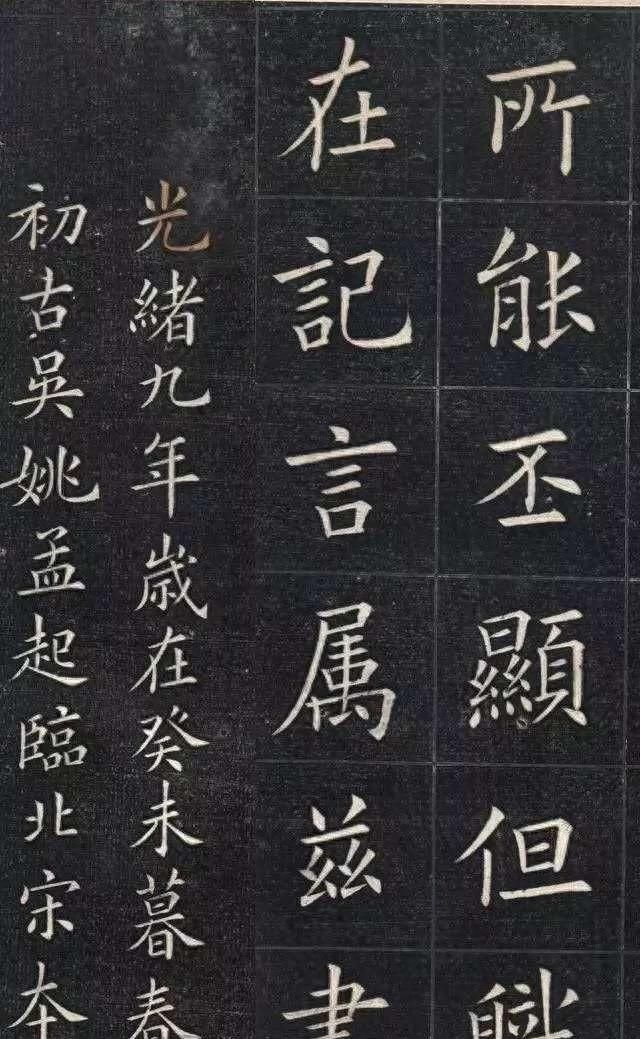 所能丕顯但職
在記言属兹書
光緒九年歲在癸未暮春
初古吳姚孟起臨北宋本